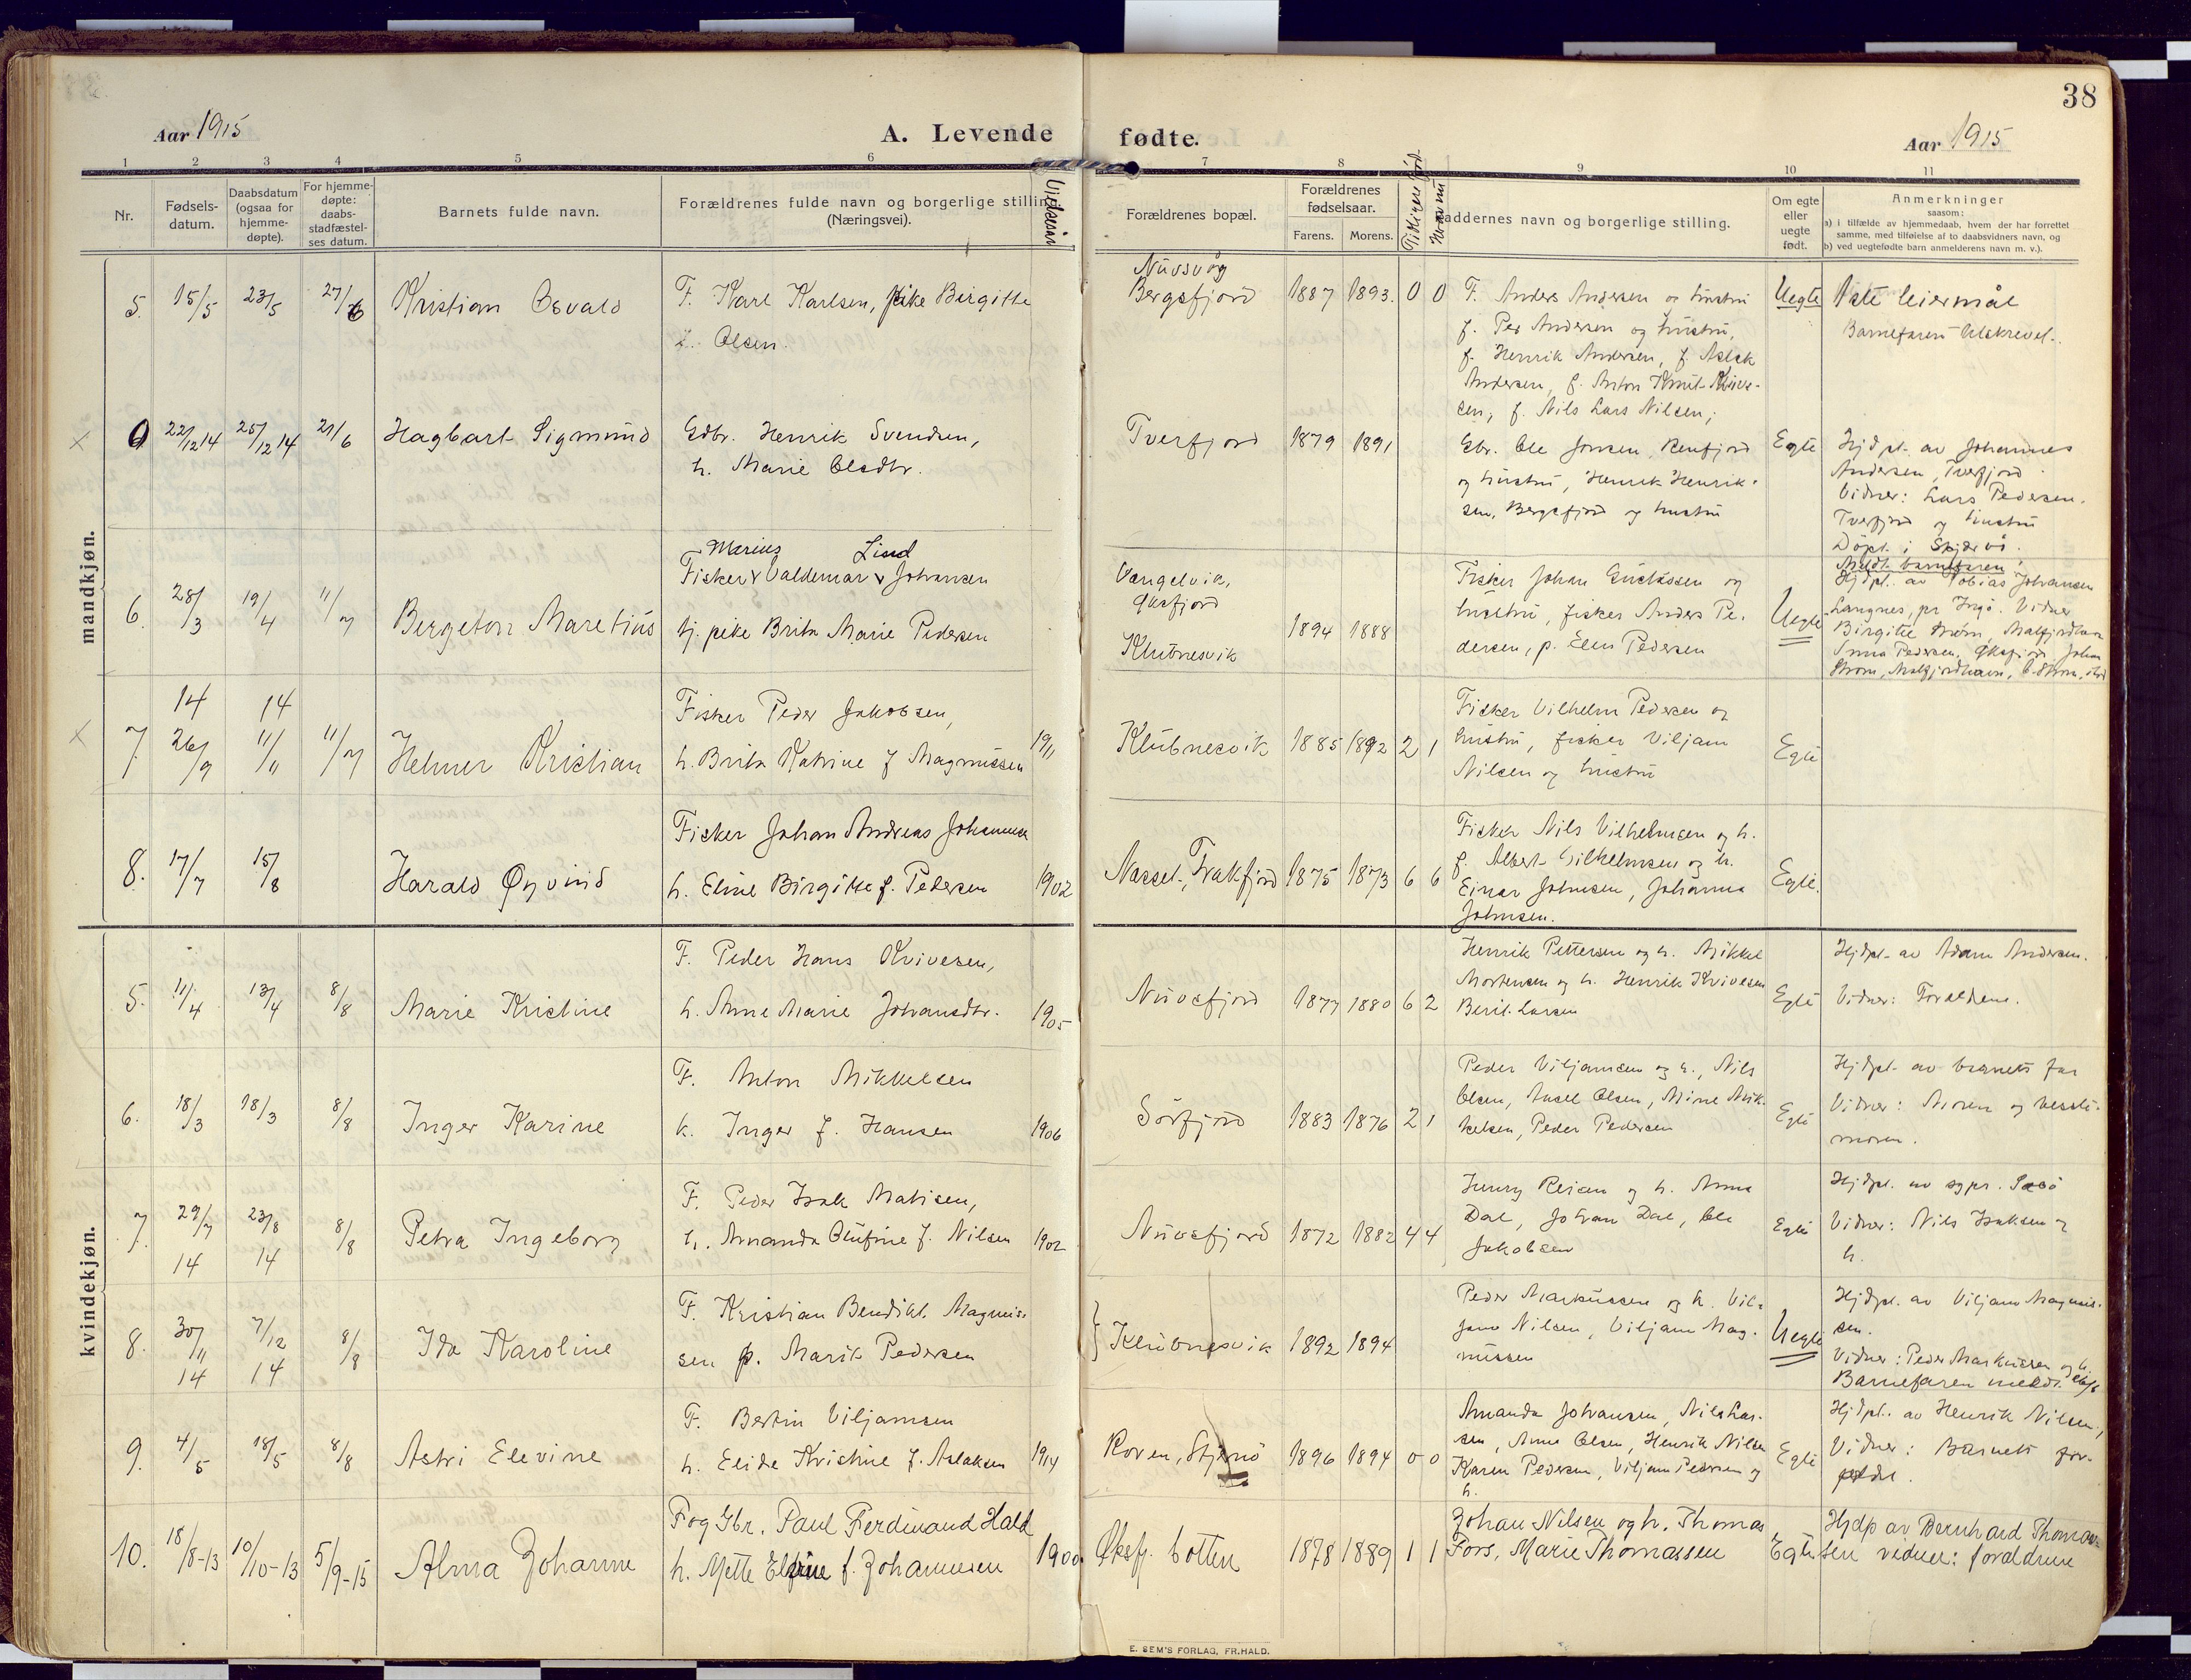 38
Aar 1915
A. Levende
fødte.
Aar 1915
1 2 3 4 5 6 7 8 9 10 11
Nr.
Fødsels-
datum.
Daabsdatum
(ogsaa for
hjemme-
døpte).
For hjemme-
døpte:
daabs-
stadfæstel-
ses datum.
Barnets fulde navn.
Forældrenes fulde navn og borgerlige stilling
(Næringsvei).
Vielsesår
Forældrenes bopæl.
Forældrenes
fødselsaar.
Farens. Morens.
Faddernes navn og borgerlige stilling.
Om egte
eller
uegte
født.
Anmerkninger
saasom:
a) i tilfælde av hjemmedaab, hvem der har forrettet
samme, med tilføielse af to daabsvidners navn, og
b) ved uegtefødte barn anmelderens navn m. v.).
mandkjøn.
5. 15/5 23/5 27/6 Kristian Osvald
F. Karl Karlsen, pike Birgitte
Olsen.
Nuvsvåg
Bergsfjord 1887 1893. 0 0
F. Anders Andersen og hustru
f. Per Andersen og hustru,
f. Henrik Andersen, f. Aslak
Andersen, f. Anton Knut
sen, f. Nils Lars Nilsen,
Uegte
1ste leiermål
Barnefaren utskrevet.
22/12 14 25/12 14 21/6 Hagbart Sigmund
Gdbr. Henrik Svendsen,
h. Marie Olsdtr.
Tverfjord 1879 1891
Gbr. Ole Jonsen, Renfjord
og hustru, Henrik Henrik-
sen, Bergsfjord og hustru
Egte
Hjdpt. av Johannes
Andersen, Tverfjord
Vidner: Lars Pedersen,
Tverfjord og hustru
Døpt i Skjervø.
6. 28/3 19/4 11/7 Bergeton Maretius
Marius Lind
Fisker Valdemar Johansen
tj. pike Brita Marie Pedersen
Vangelvik,
Øksfjord
Klubnesvik
1894 1888
Fisker Johan Gustavsen og
hustru, fisker Anders Pe-
dersen, p. Elen Pedersen
Uegte
Meldt barnefaren
Hjdpt. av Tobias Johansen
Langnes, pr Ingø. Vidner
Birgitte Strøm,
Anna Pedersen, Øksfjord, Johan
7. 14 26/9 14 11/11 11/7 Helmer Kristian
Fisker Peder Jakobsen,
h. Brita Katrine f Magnussen 1911
Klubnesvik 1885 1892 2 1
Fisker Vilhelm Pedersen og
hustru, fisker Viljam
Nilsen og hustru
Egte
8. 17/7 15/8 Harald Øyvind
Fisker Johan Andreas Johannesen
h. Eline Birgitte f. Pedersen 1902
Nasset, Frakfjord 1875 1873 6 6
Fisker Nils Vilhelmsen og h.
f. Albert Vilhelmsen og h.
Einar Johnsen, Johanna
Johnsen.
Egte.
kvindekjøn.
5. 11/4 13/4 8/8 Marie Kristine
F. Peder Hans Kvivesen,
h. Anne Marie Johansdtr. 1905
Nuvsfjord 1877 1880 6 2
Henrik Pettersen og h. Mikkel
Mortensen og h. Henrik Kvivesen
Berit Larsen
Egte
Hjdpt. av Adam Andersen.
Vidner: Forældrene.
6. 18/3 18/3 8/8 Inger Karine
F. Anton Mikkelsen
h. Inger f. Hansen 1906
Sørfjord 1883 1876 2 1
Peder Viljamsen og h., Nils
Olsen, Aksel Olsen, Mine Mik-
kelsen, Peder Pedersen
Egte
Hjdpt. av barnets far
Vidner: Moren og beste-
moren.
7. 29/7 14 23/8 14 8/8 Petra Ingeborg
F. Peder Isak Matisen,
h. Amanda Olufine f. Nilsen 1902
Nuvsfjord 1872 1882 4 4
Henry Reian og h. Anna
Dal, Johan Dal, Ole
Jakobsen
Egte
Hjdpt. av sgpr. Sæbø
Vidner: Nils Isaksen og
h.
8. 30/11 14 7/12 14 8/8 Ida Karoline
F. Kristian Bendikt. Magnus-
sen p. Marit Pedersen
Klubnesvik 1892 1894
Peder Markussen og h. Vil-
jam Nilsen, Viljam Mag-
nussen
Uegte
Hjdpt. av Viljam Magnus-
sen.
Vidner: Peder Markussen og h.
Barnefaren meldt
9. 4/5 18/5 8/8 Astri Elevine
F. Bertin Viljamsen
h. Elide Kristine f. Aslaksen 1914
Roven, Stjernø 1896 1894 0 0
Amanda Johansen, Nils Lar-
sen, Anne Olsen, Henrik Nilsen
Karen Pedersen, Viljam Pedersen og
h.
Egte
Hjdpt. av Henrik Nilsen,
Vidner: Barnets for-
ældre.
10. 18/8-13 10/10-13 5/9-15 Alma Johanne
F og Gbr. Paul Ferdinand Hald
h. Mette Elfine f. Johannesen 1900
Øksfj. botten 1878 1889 1 1
Johan Nilsen og h. Thomas
Fors, Marie Thomassen
Egte
Hjdp av Bernhard Thomas-
sen vidner: forældrene
E. SEM'S FORLAG, FR.HALD.